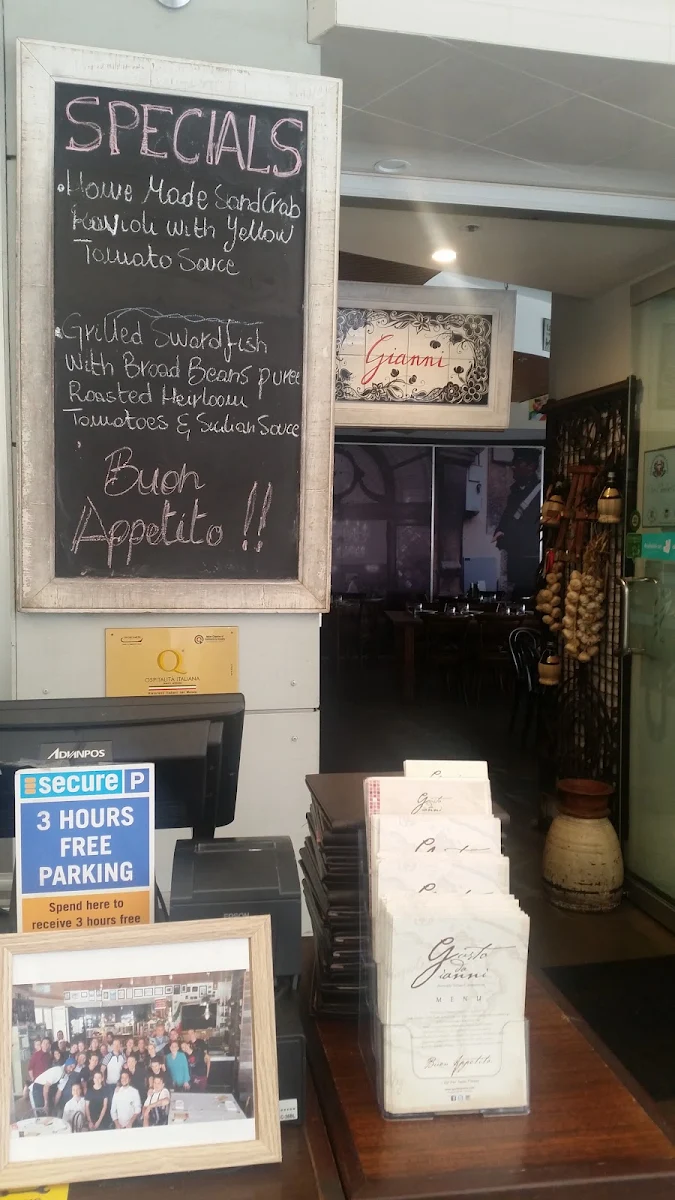 SPECIALS
• Home Made SandCrab
Ravioli with Yellow
Tomato Sauce
• Grilled Swordfish
With Broad Beans puree
Roasted Heirloom
Tomatoes & Sicilian Sauce
Buon
Appetito !!
Gianni
Q
OSPITALITÀ ITALIANA
ADVANPOS
secure P
3 HOURS
FREE
PARKING
Spend here to
receive 3 hours free
EPSON
Gusto
Gusto
da
Gianni
MENU
Buon Appetito